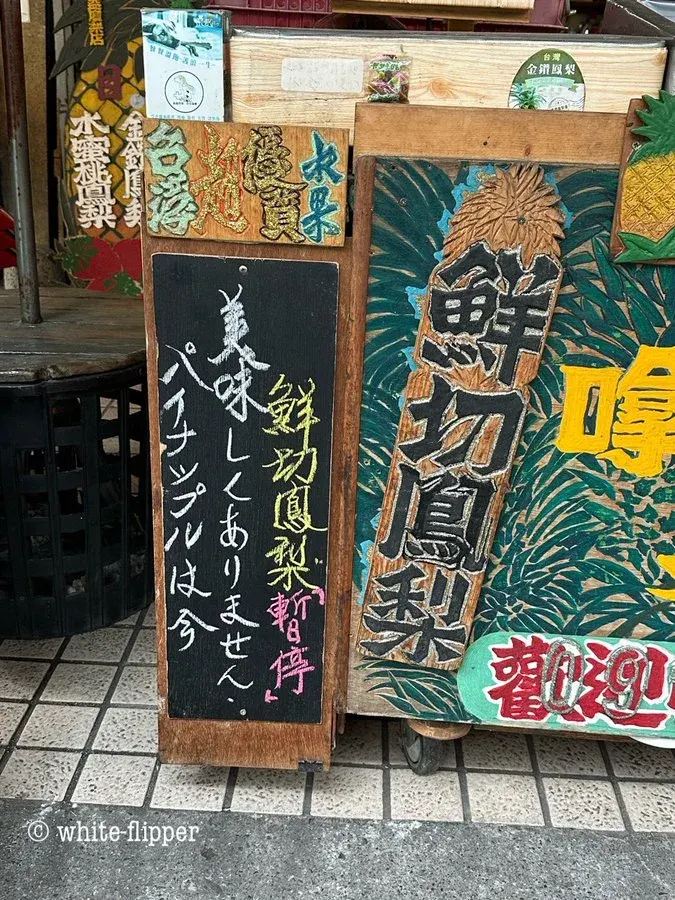 金鑽鳳梨
水蜜桃鳳梨
台灣
金鑽鳳梨
台灣超優質水果
鮮切鳳梨「暫停」
パイナップルは今
美味しくありません.
鮮切鳳梨
歡迎
© white-flipper